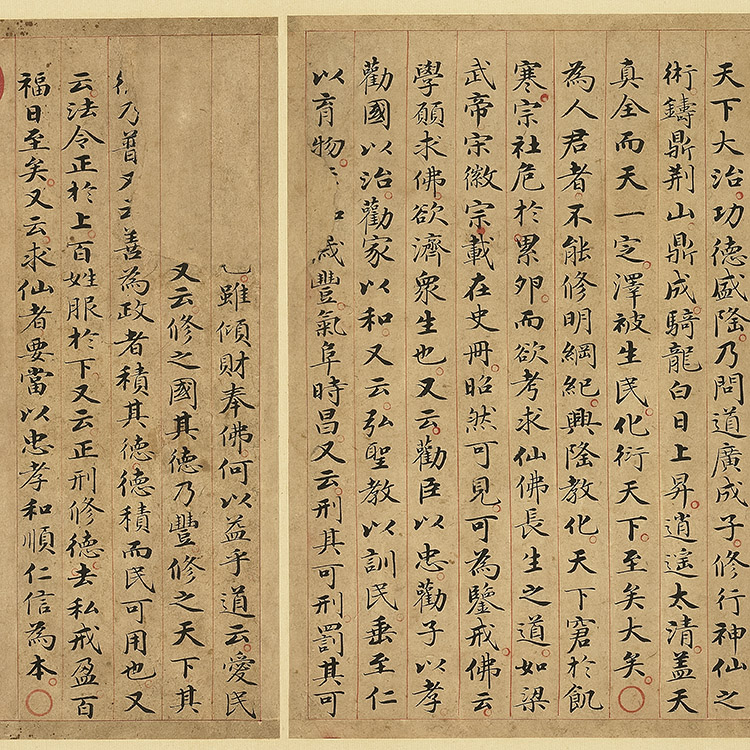 天下大治功德盛隆乃問道廣成子修行神仙之
術鑄鼎荆山鼎成騎龍白日上昇逍遥太清蓋天
真全而天一定澤被生民化衍天下至矣大矣
為人君者不能修明綱紀興隆教化天下窘於飢
寒宗社危於累卵而欲考求仙佛長生之道如梁
武帝宗徽宗載在史冊昭然可見可為鑒戒佛云
學願求佛欲濟衆生也又云勸臣以忠勸子以孝
勸國以治勸家以和又云弘聖教以訓民垂至仁
以育物歲豐氣阜時昌又云刑其可刑罰其可
雖傾財奉佛何以益乎道云愛民
又云修之國其德乃豐修之天下其
德乃普又善為政者積其德德積而民可用也又
云法令正於上百姓服於下又云正刑修德去私戒盈百
福日至矣又云求仙者要當以忠孝和順仁信為本